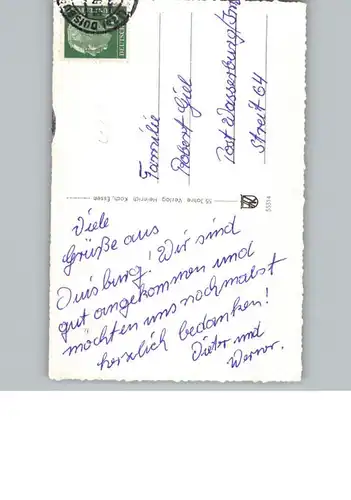 Viele
Grüße aus
Duisburg! Wir sind
gut angekommen und
möchten uns nochmalst
herzlich bedanken!
Dieter und
Werner.
55 Jahre Verlag Heinrich Koch, Essen
55514
Familie
Robert Giel
Post Wasserburg/Inn
Streit 64